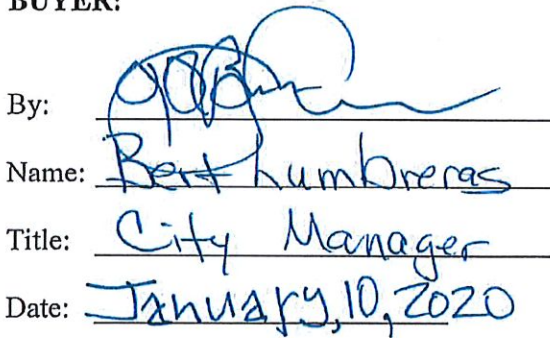 BUYER:
By:
Name: Bert Lumbreras
Title: City Manager
Date: January, 10, 2020